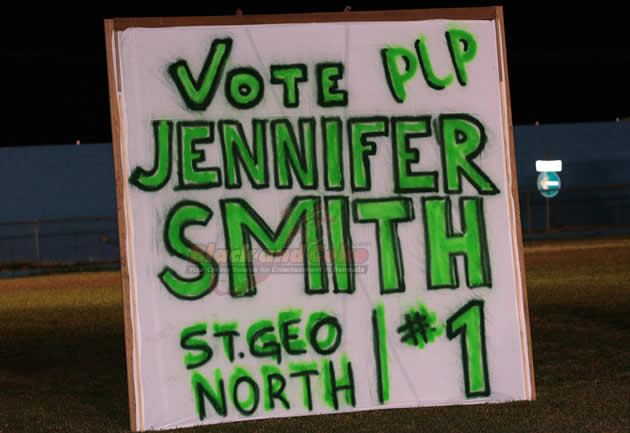 VOTE PLP
JENNIFER
SMITH
Black and Coke
Your Online Source for Entertainment in Bermuda
ST. GEO
NORTH | #1